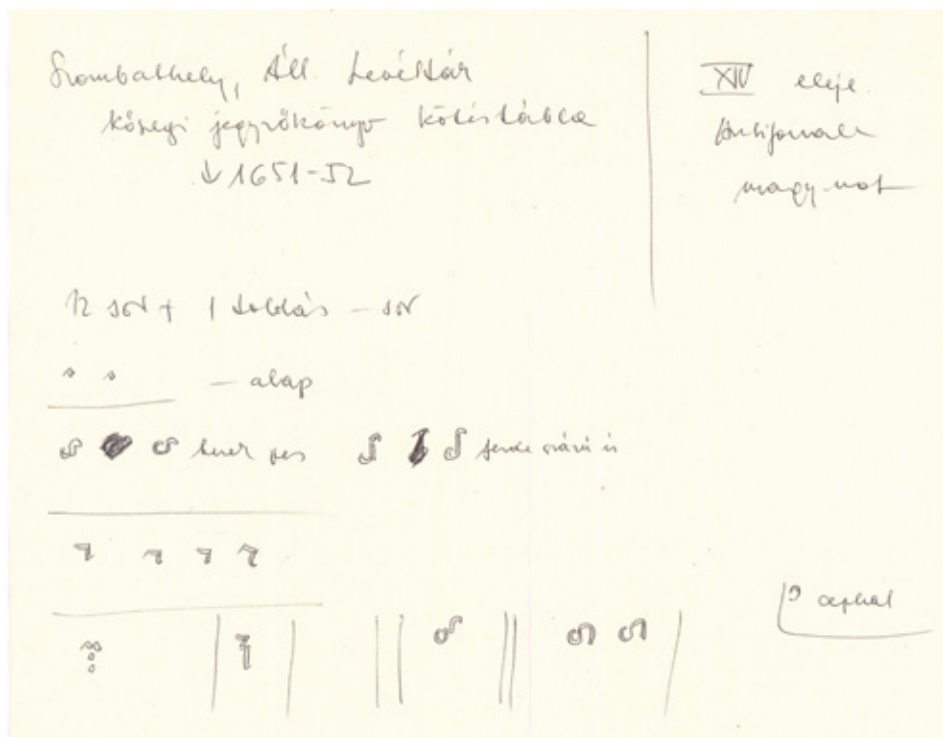 Szombathely, Áll Levéltár
kőszegi jegyzőkönyv kötéstábla
↓ 1651-52
XIV eleje
Antifonale
magy. not
12 sor + 1 toldás – sor
— alap
pes
ferde szárú is
cephal